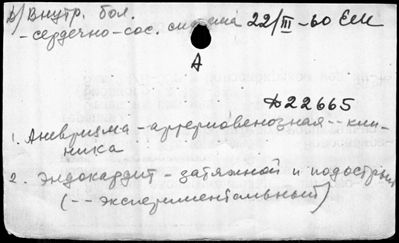 б) Внутр. бол.
- сердечно-сос. система 22/III-60 ЕИ
А
Д22665
1. Аневризма - артериовенозная -- кли-
ника
2. Эндокардит - затяжной и подострый
(-- экспериментальный)